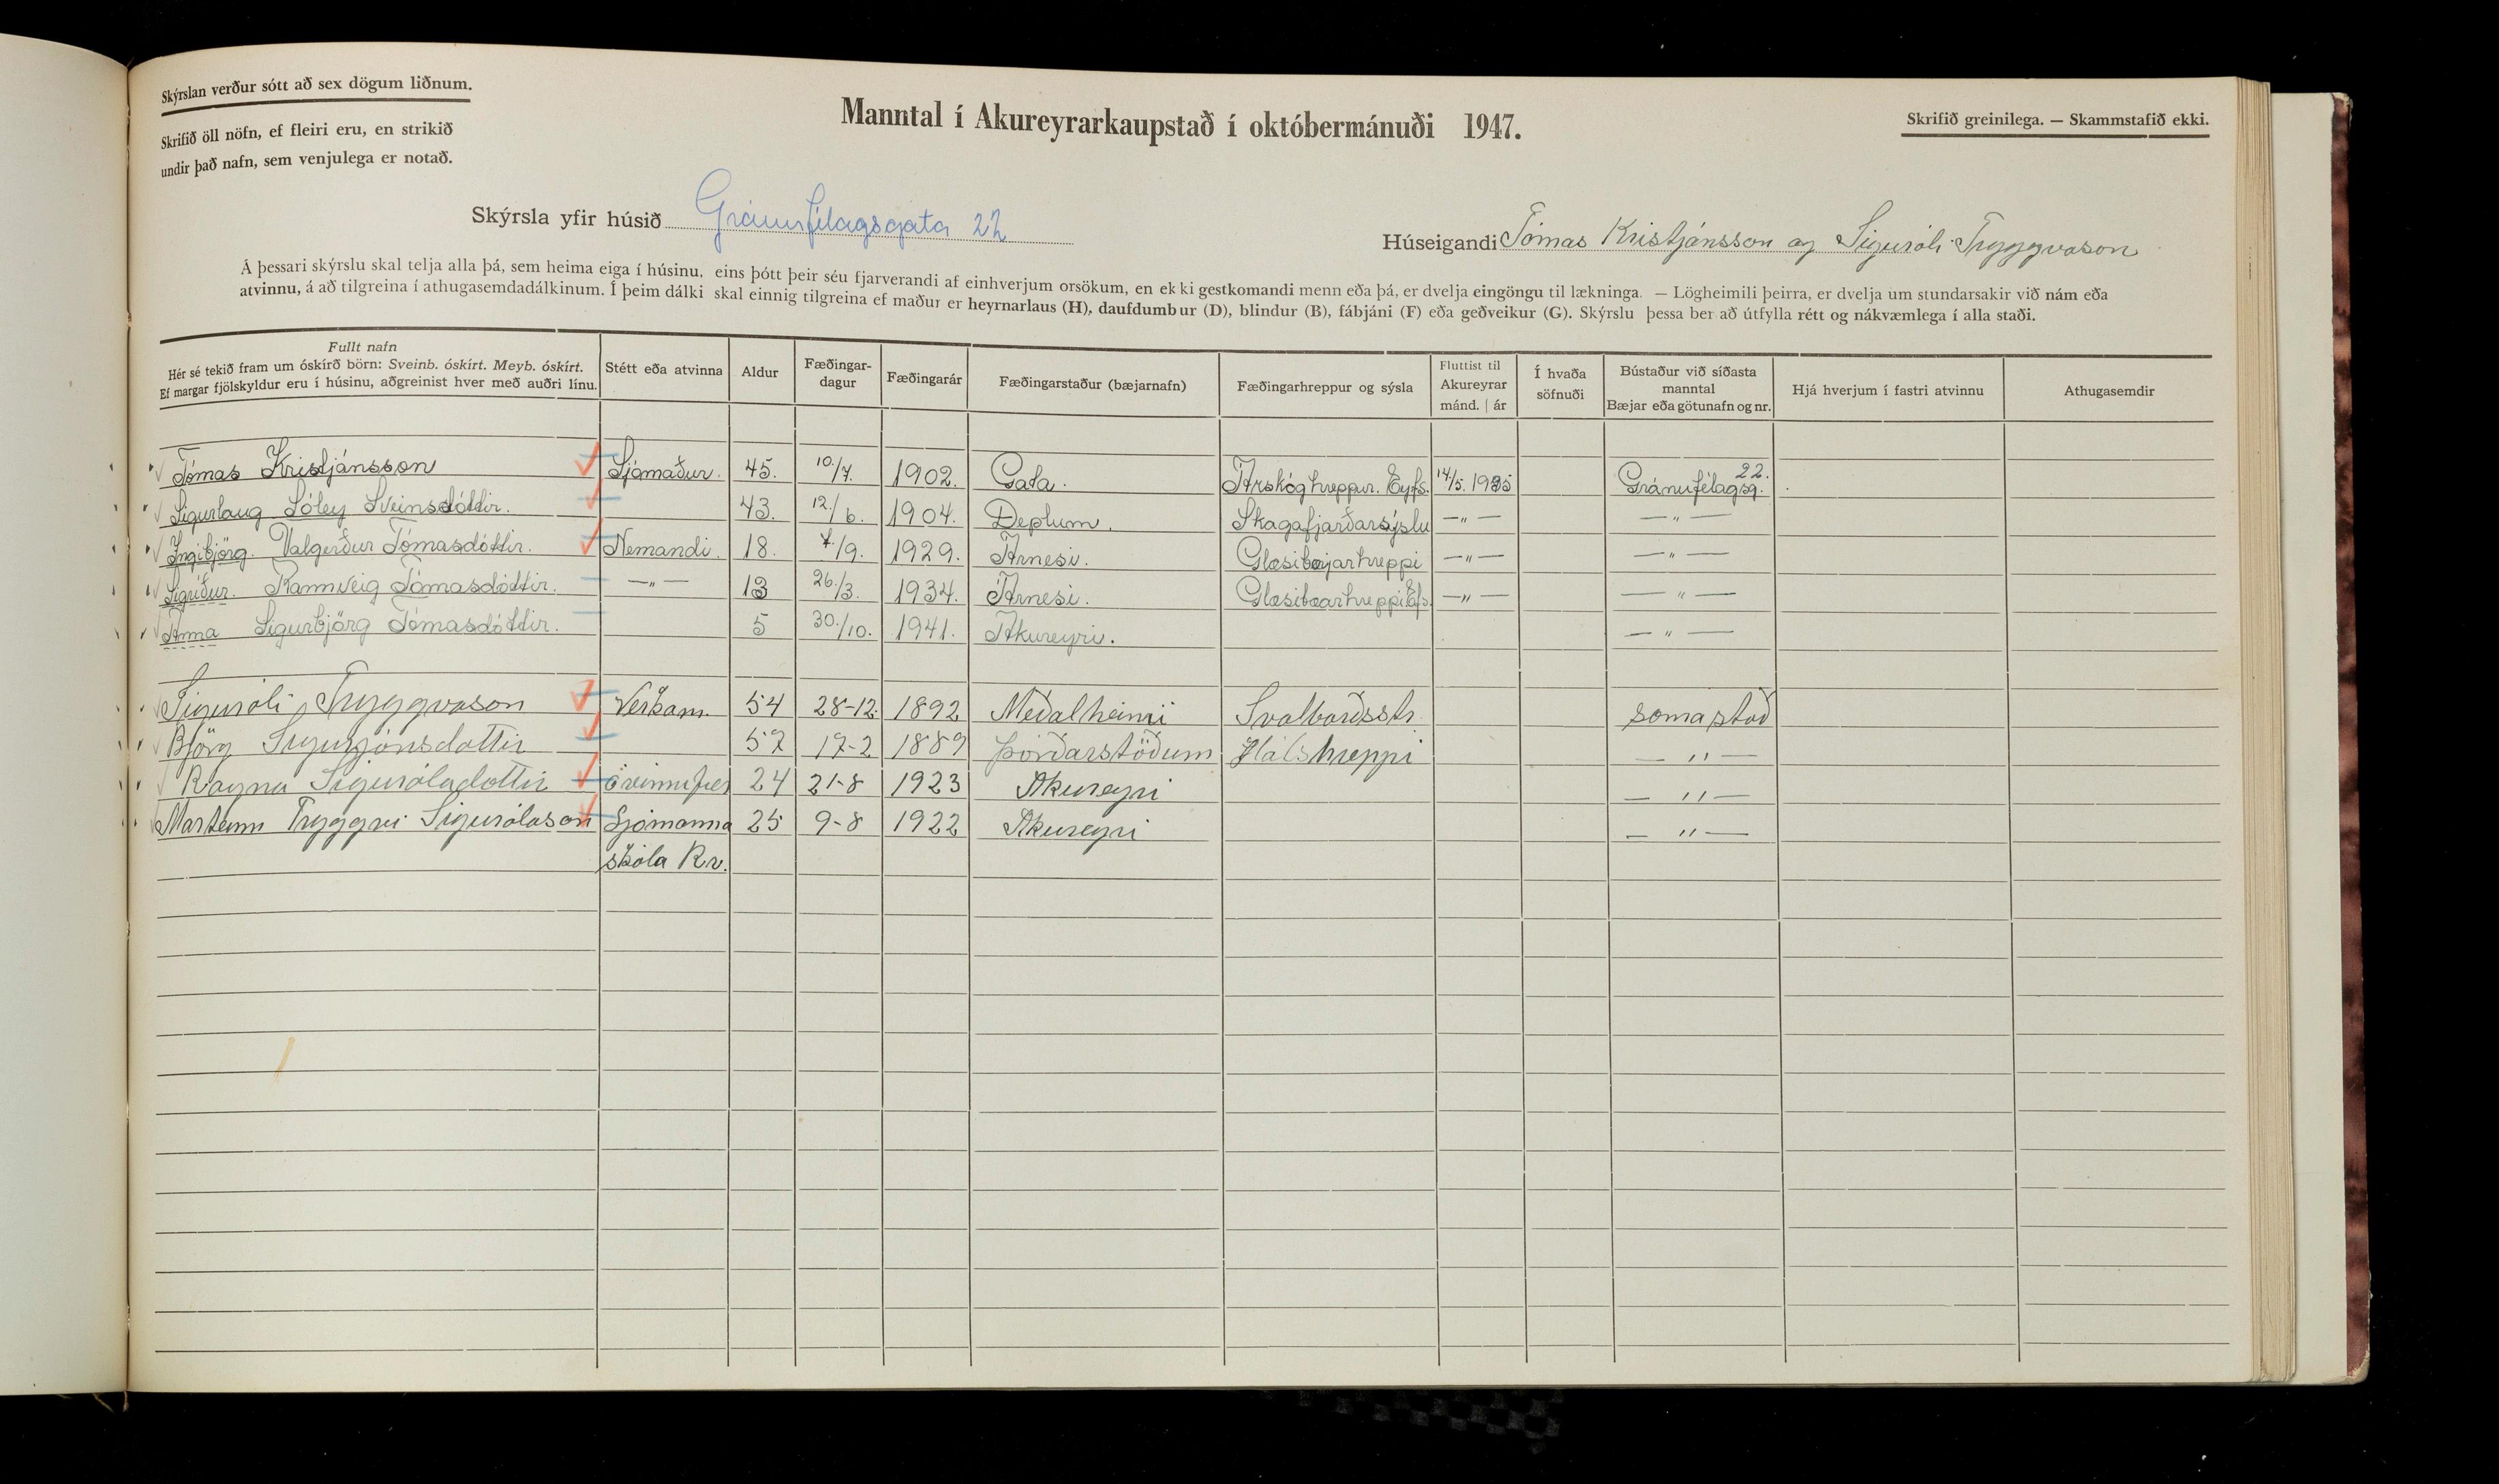 Skýrslan verður sótt að sex dögum liðnum.
Skrifið öll nöfn, ef fleiri eru, en strikið
undir það nafn, sem venjulega er notað.
Manntal í Akureyrarkaupstað í októbermánuði 1947.
Skrifið greinilega. — Skammstafið ekki.
Skýrsla yfir húsið Gránufélagsgata 22
Húseigandi Tómas Kristjánsson og Siguróli Tryggvason
Á þessari skýrslu skal telja alla þá, sem heima eiga í húsinu, eins þótt þeir séu fjarverandi af einhverjum orsökum, en ekki gestkomandi menn eða þá, er dvelja eingöngu til lækninga. — Lögheimili þeirra, er dvelja um stundarsakir við nám eða
atvinnu, á að tilgreina í athugasemdadálkinum. Í þeim dálki skal einnig tilgreina ef maður er heyrnarlaus (H), daufdumbur (D), blindur (B), fábjáni (F) eða geðveikur (G). Skýrslu þessa ber að útfylla rétt og nákvæmlega í alla staði.
Fullt nafn
Hér sé tekið fram um óskírð börn: Sveinb. óskírt. Meyb. óskírt.
Ef margar fjölskyldur eru í húsinu, aðgreinist hver með auðri línu.
Stétt eða atvinna
Aldur
Fæðingar-
dagur
Fæðingarár
Fæðingarstaður (bæjarnafn)
Fæðingarhreppur og sýsla
Fluttist til
Akureyrar
mánd. | ár
Í hvaða
söfnuði
Bústaður við síðasta
manntal
Bæjar eða götunafn og nr.
Hjá hverjum í fastri atvinnu
Athugasemdir
Tómas Kristjánsson Sjómaður. 45. 10./7. 1902. Gata. Árskóghreppur. Eyfs. 14/5. 1935 Gránufélagsg. 22.
Sigurlaug Sóley Sveinsdóttir. 43. 12./6. 1904. Deplum. Skagafjarðarsýslu —„— —„—
Ingibjörg. Valgerður Tómasdóttir. Nemandi. 18. 7./9. 1929. Árnesi. Glæsibæjarhreppi —„— —„—
Sigríður. Rannveig Tómasdóttir. —„— 13 26./3. 1934. Árnesi. Glæsibæarhreppi Eyfs. —„— —„—
Anna Sigurbjörg Tómasdóttir. 5 30./10. 1941. Akureyri. —„—
Siguróli Tryggvason Verkam. 54 28-12. 1892 Meðalheimi Svalbarðsstr. sama stað
Björg Sigurjónsdottir 57 17-2 1889 Þórðarstöðum Hálshreppi —„—
Ragna Siguróladottir 24 21-8 1923 Akureyri —„—
Marteinn Tryggvi Sigurólason Sjómanna 25 9-8 1922 Akureyri —„—
skóla Rv.